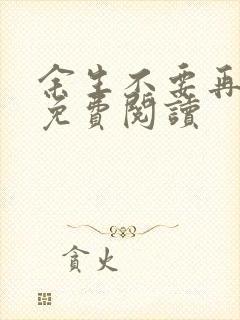 余生不要再
免費閱讀
貪火